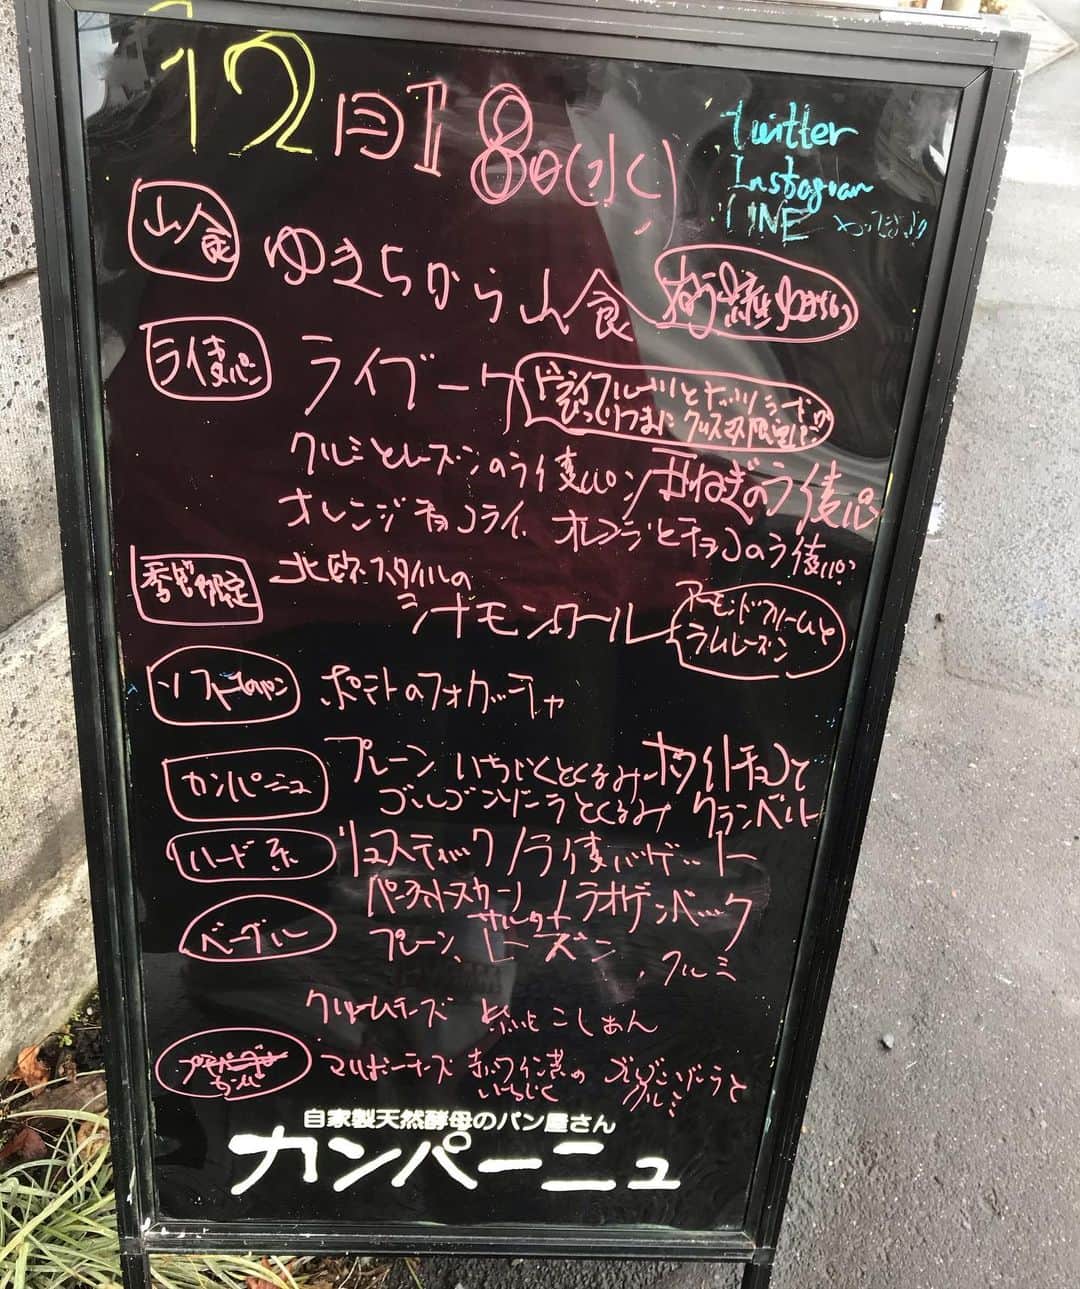 12月18日(水)
twitter
Instagram
LINE やってます
山食
ゆきちから山食
ライ麦パン
ライブーケ
ドライフルーツとナッツ
クリスマス限定パン
クルミとレーズンのライ麦パン 玉ねぎのライ麦パン
オレンジチョコライ オレンジとチョコのライ麦パン
季節限定
北欧スタイルの
シナモンロール
アーモンドクリームと
ラムレーズン
ソフトなパン
ポテトのフォカッチャ
カンパーニュ
プレーン いちじくとくるみ ホワイトチョコと
ゴルゴンゾーラとくるみ クランベリー
ハード系
リュスティック/ライ麦バゲット
ベーグル
プレーン、サルタナレーズン、クルミ
クリームチーズ こしあん
マリボーチーズ 赤ワイン煮の ゴルゴンゾーラと
いちじく クルミ
自家製天然酵母のパン屋さん
カンパーニュ